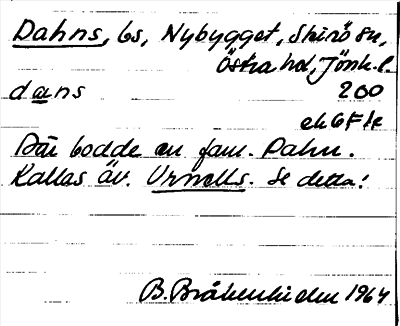 Dahns, bs, Nybygget, Skirö sn,
Östra hd, Jönk. l.
dans 200
ek 6 F
Där bodde en fam. Dahn.
Kallas äv. Urnells. Se detta!
B. 1964